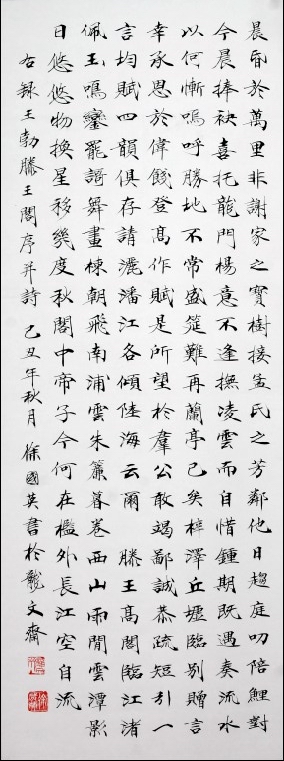 晨昏於萬里非謝家之寶樹接孟氏之芳鄰他日趨庭叨陪鯉對
今晨捧袂喜托龍門楊意不逢撫凌雲而自惜鍾期既遇奏流水
以何慚嗚呼勝地不常盛筵難再蘭亭已矣梓澤丘墟臨別贈言
幸承恩於偉餞登高作賦是所望於羣公敢竭鄙誠恭疏短引一
言均賦四韻俱存請灑潘江各傾陸海云爾 滕王高閣臨江渚
佩玉鳴鑾罷謌舞畫棟朝飛南浦雲朱簾暮卷西山雨閒雲潭影
日悠悠物換星移幾度秋閣中帝子今何在檻外長江空自流
右録王勃滕王閣序并詩 己丑年秋月 徐國英書於龍文齋